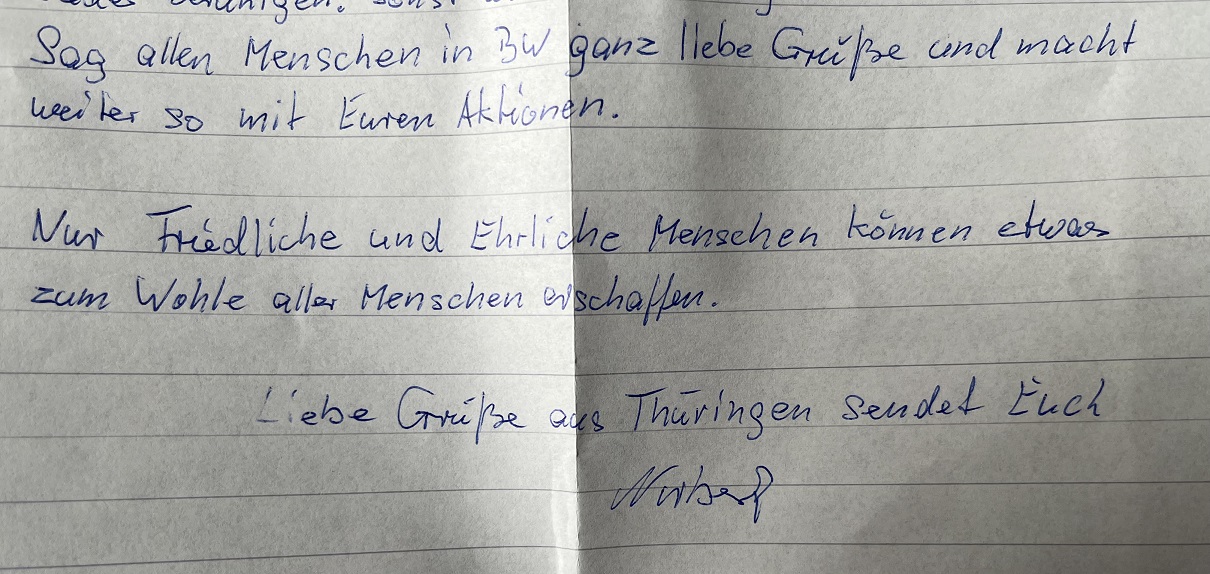 Sag allen Menschen in BW ganz liebe Grüße und macht
weiter so mit Euren Aktionen.
Nur Friedliche und Ehrliche Menschen können etwas
zum Wohle aller Menschen erschaffen.
Liebe Grüße aus Thüringen sendet Euch
Norbert